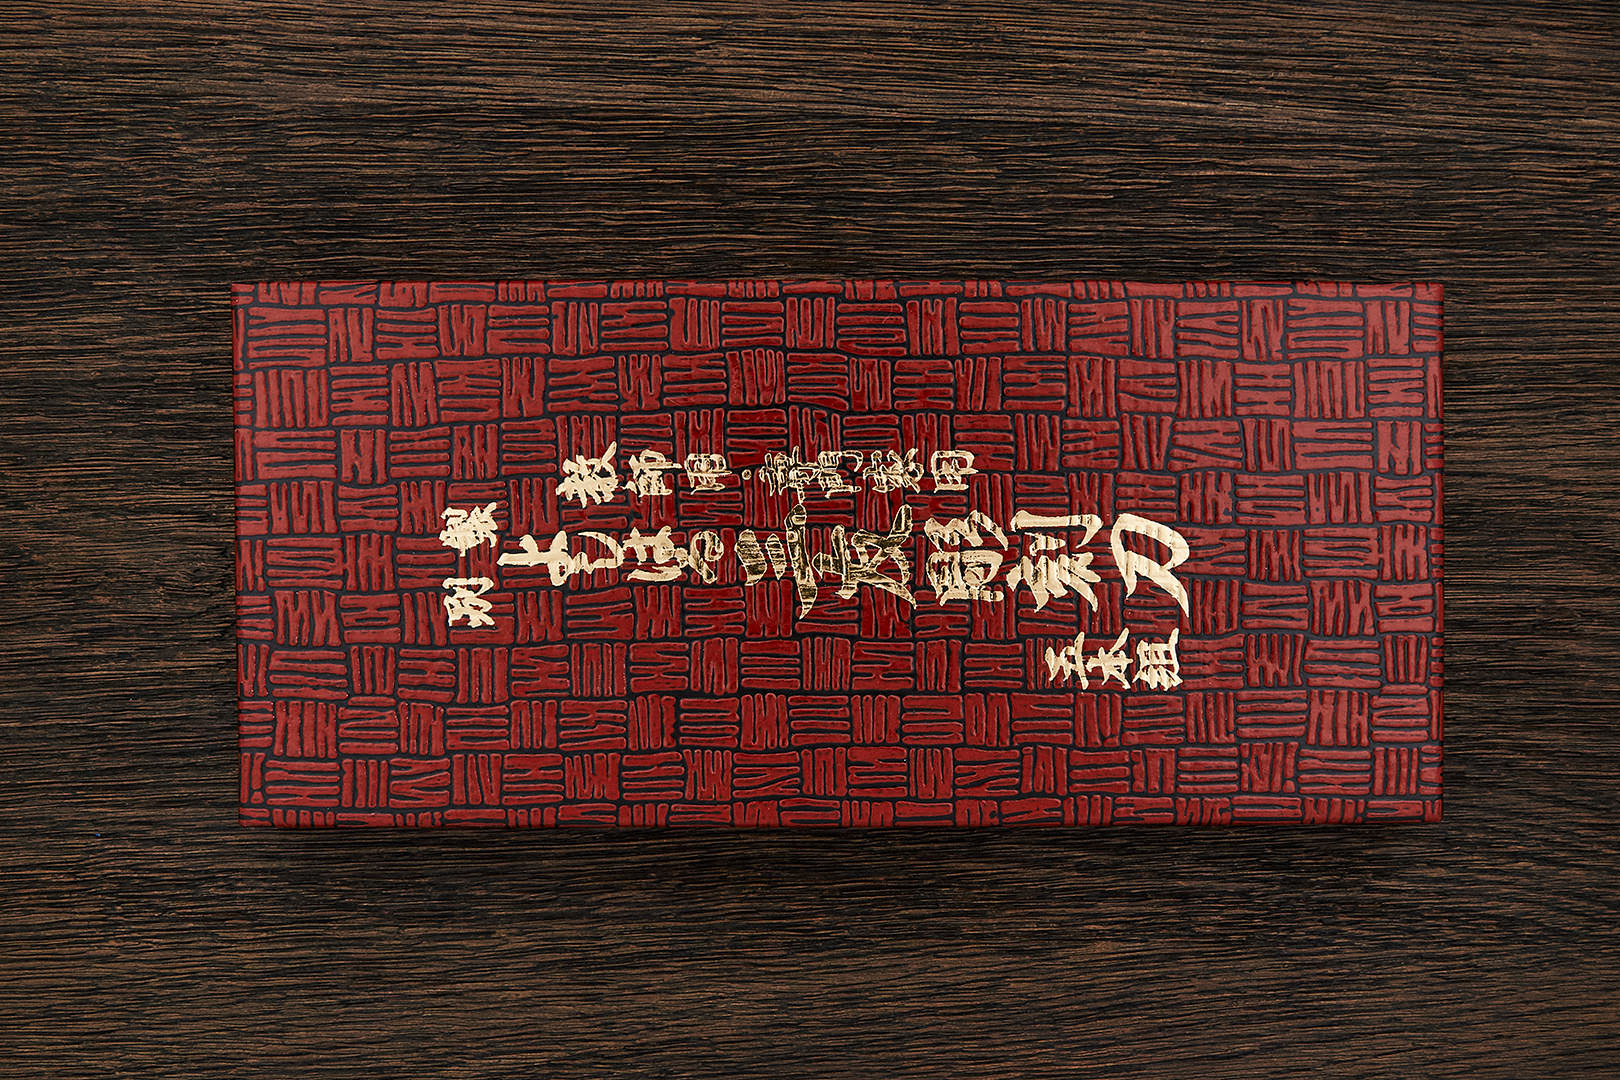 別製
教師用・専門家用
よしはる彫刻刀
五本組